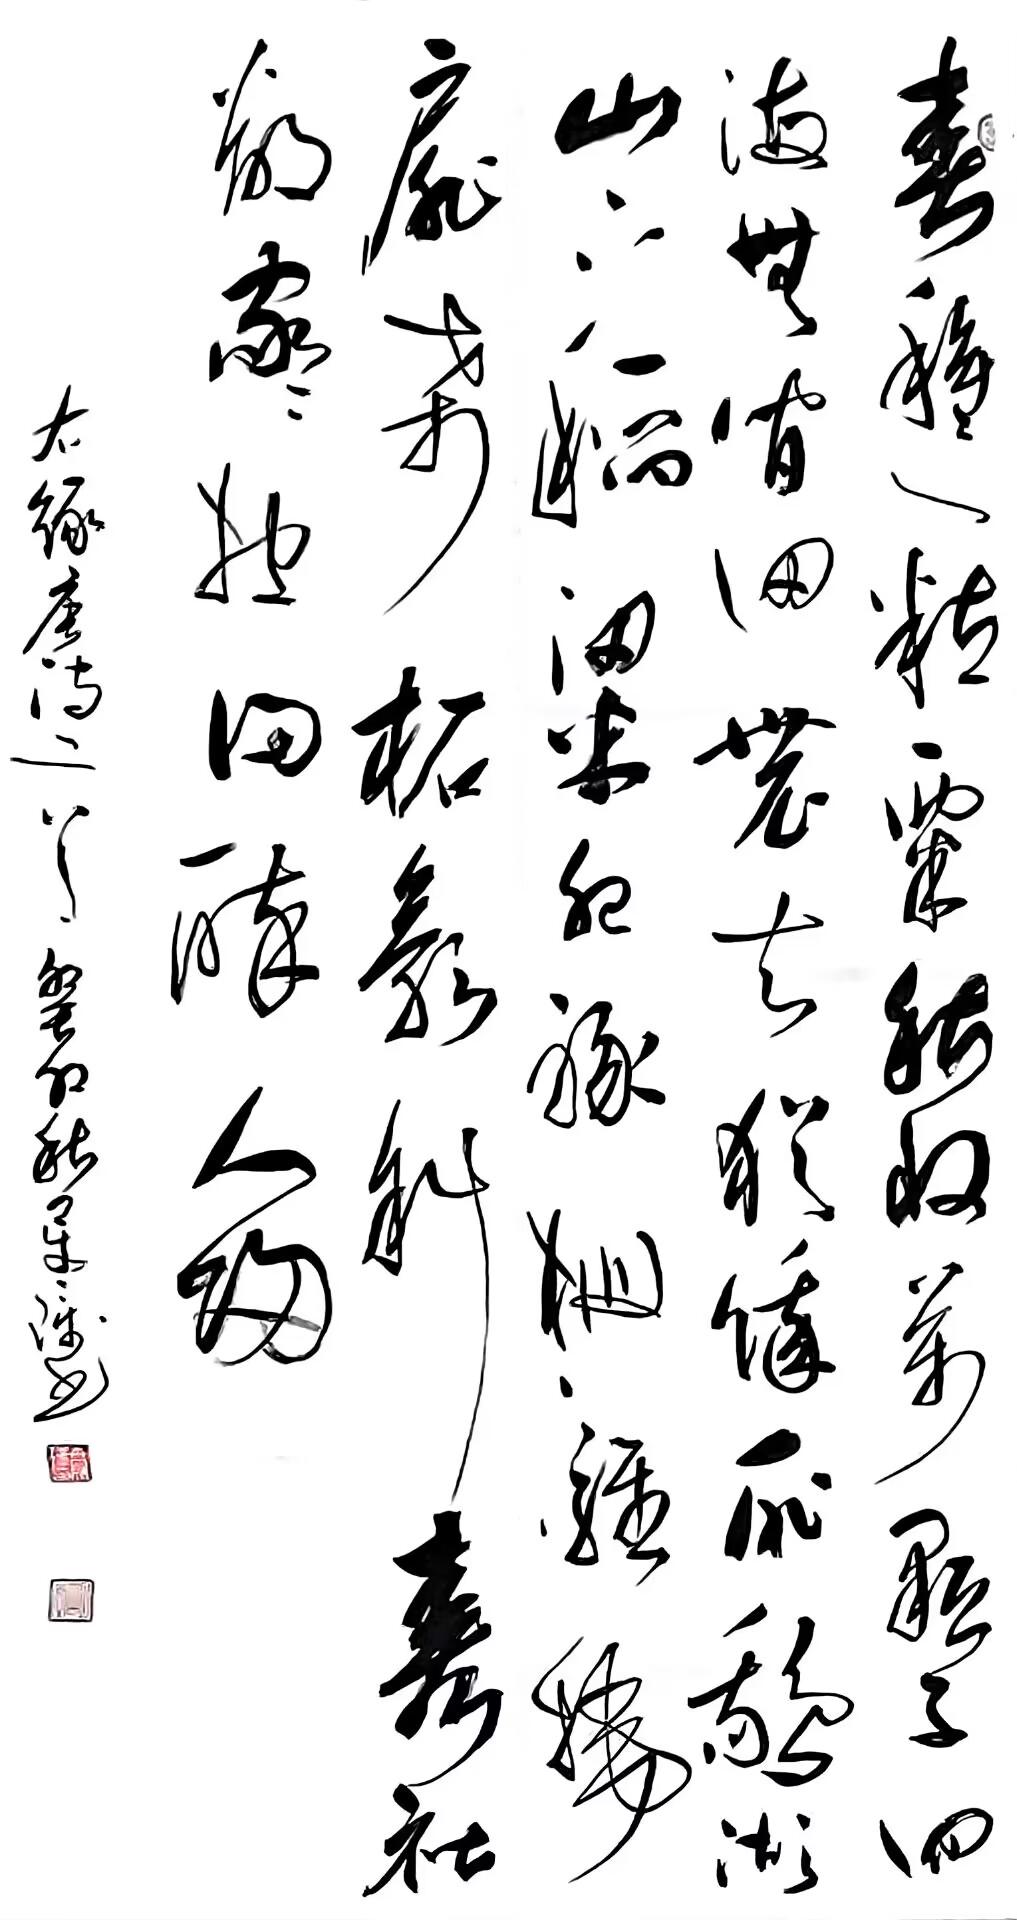 春種一粒粟秋收萬颗子四
海無閒田農夫犹餓死鵝湖
山下稻粱肥豚栅雞棲
扉桑柘影斜春社
散家々扶得醉人歸
右録唐诗二首癸卯秋書